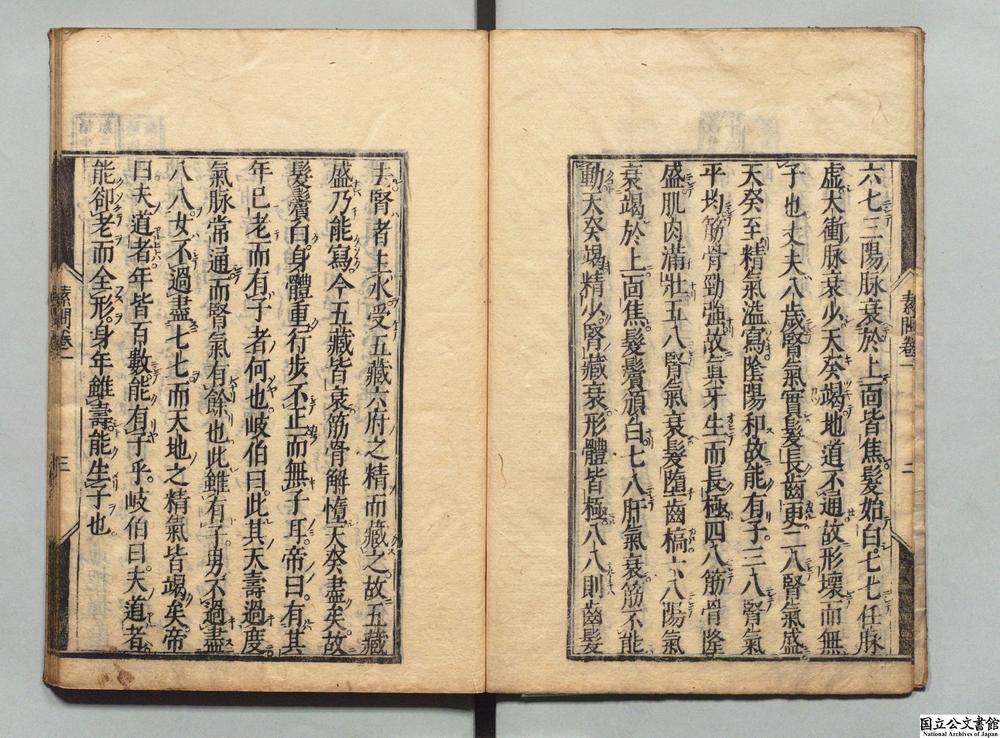 六七三陽脉衰於上面皆焦髮始白七七任脉
虛太衝脉衰少天癸竭地道不通故形壞而無
子也丈夫八歲腎氣實髮長齒更二八腎氣盛
天癸至精氣溢寫陰陽和故能有子三八腎氣
平均筋骨勁強故真牙生而長極四八筋骨隆
盛肌肉滿壯五八腎氣衰髮墮齒槁六八陽氣
衰竭於上面焦髮鬢頒白七八肝氣衰筋不能
動天癸竭精少腎藏衰形體皆極八八則齒髮
素問卷一
二
去腎者主水受五藏六府之精而藏之故五藏
盛乃能寫今五藏皆衰筋骨解惰天癸盡矣故
髮鬢白身體重行步不正而無子耳帝曰有其
年已老而有子者何也岐伯曰此其天壽過度
氣脉常通而腎氣有餘也此雖有子男不過盡
八八女不過盡七七而天地之精氣皆竭矣帝
曰夫道者年皆百數能有子乎岐伯曰夫道者
能卻老而全形身年雖壽能生子也
素問卷一
三
国立公文書館
National Archives of Japan